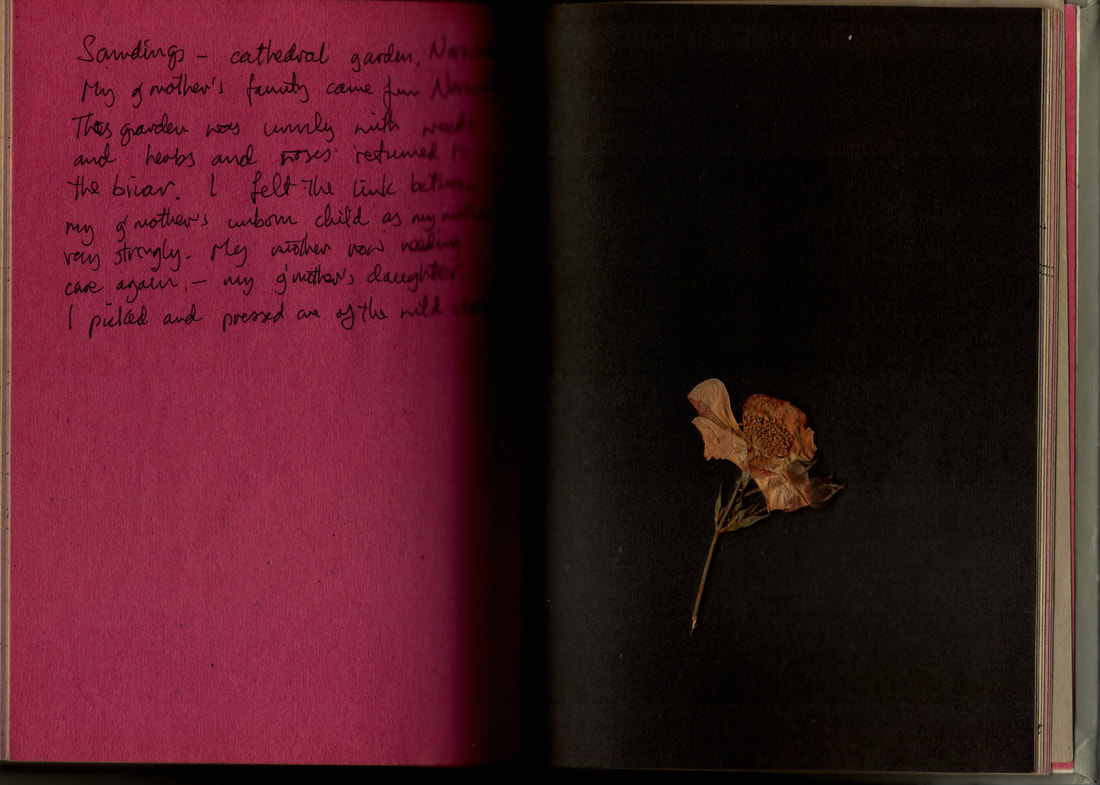 Soundings – cathedral garden,
My g'mother's family came from
This garden was unruly with weeds
and herbs and roses returned to
the briar. I felt the link between
my g'mother's unborn child as my mother
very strongly. My mother now needing
care again. – my g'mother's daughter.
I picked and pressed one of the wild